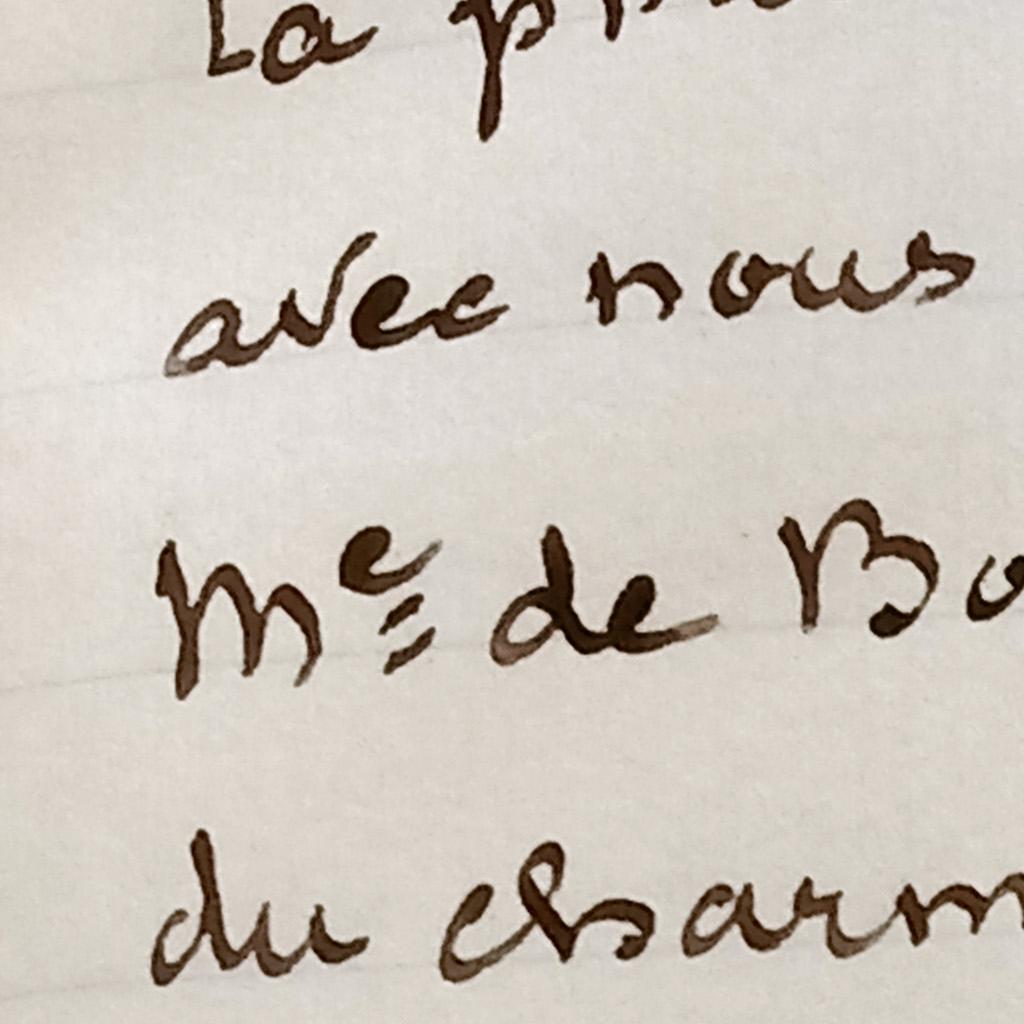 La
avec nous
Me= de Bo
du charm